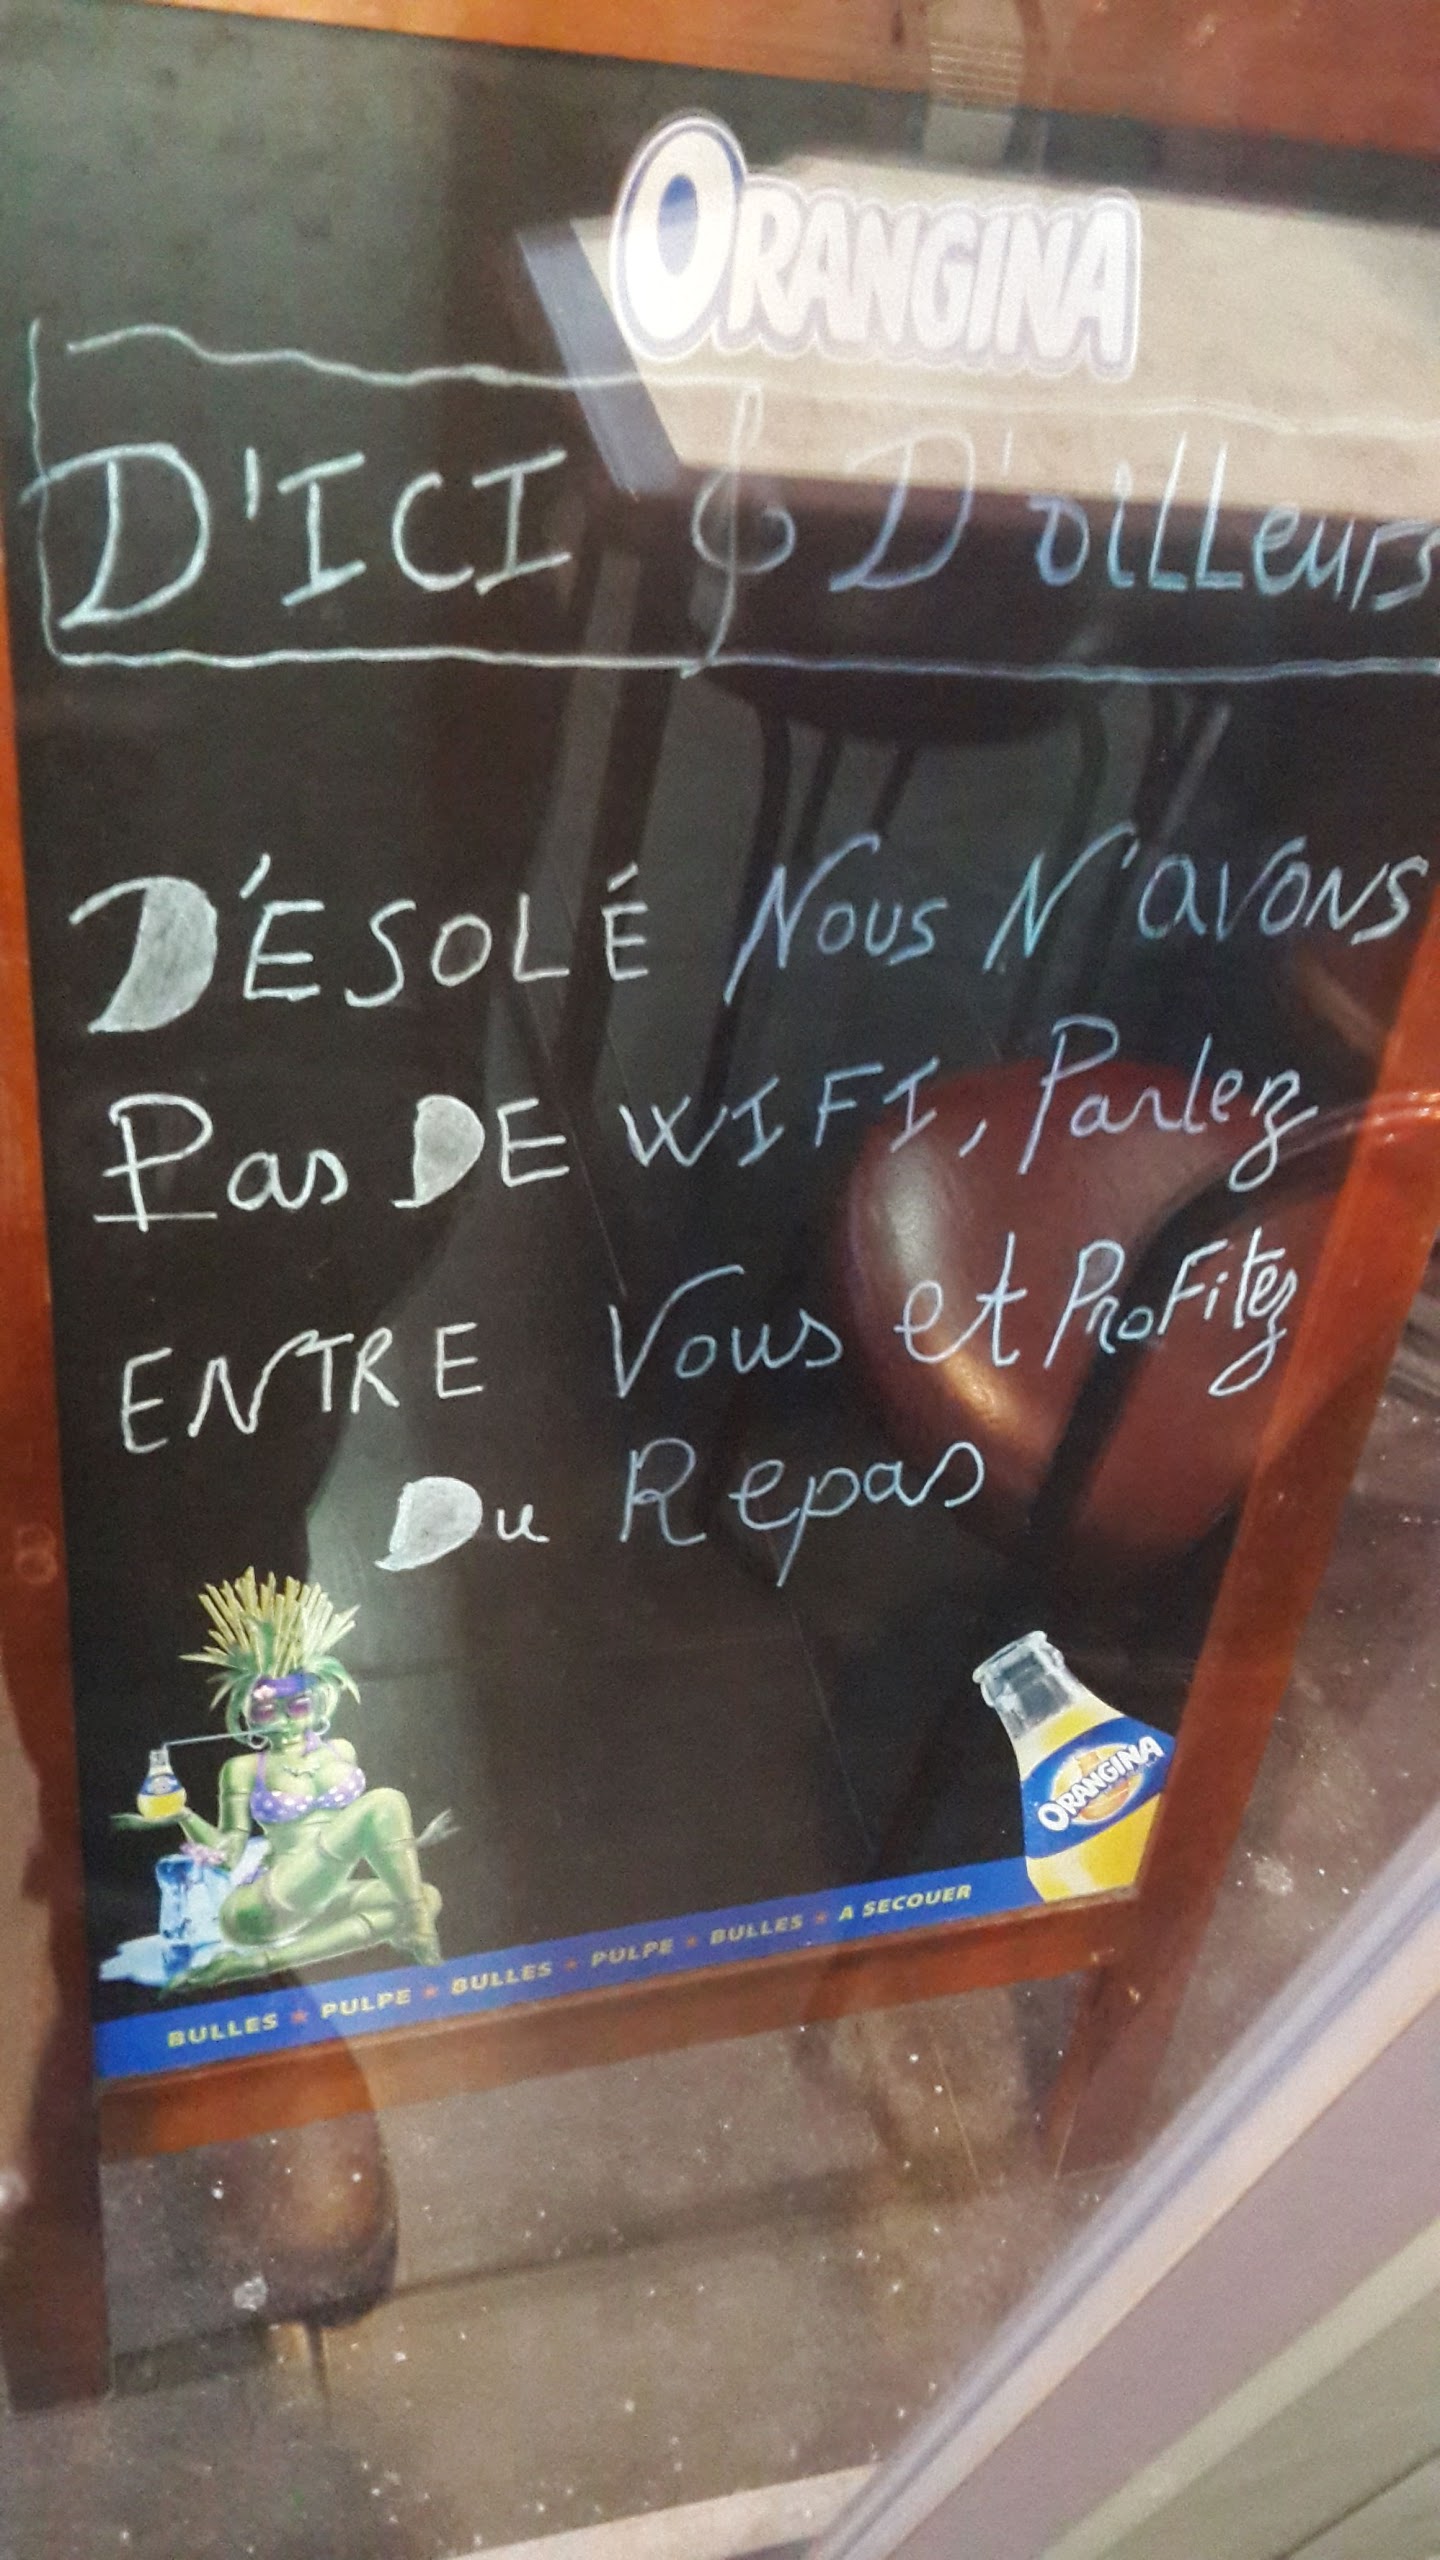 ORANGINA
D'ICI & D'aiLLeurs
DÉSOLÉ Nous N'avons
Pas DE WIFI, Parlez
ENTRE Vous et Profitez
Du Repas
ORANGINA
BULLES * PULPE * BULLES * PULPE * BULLES * A SECOUER